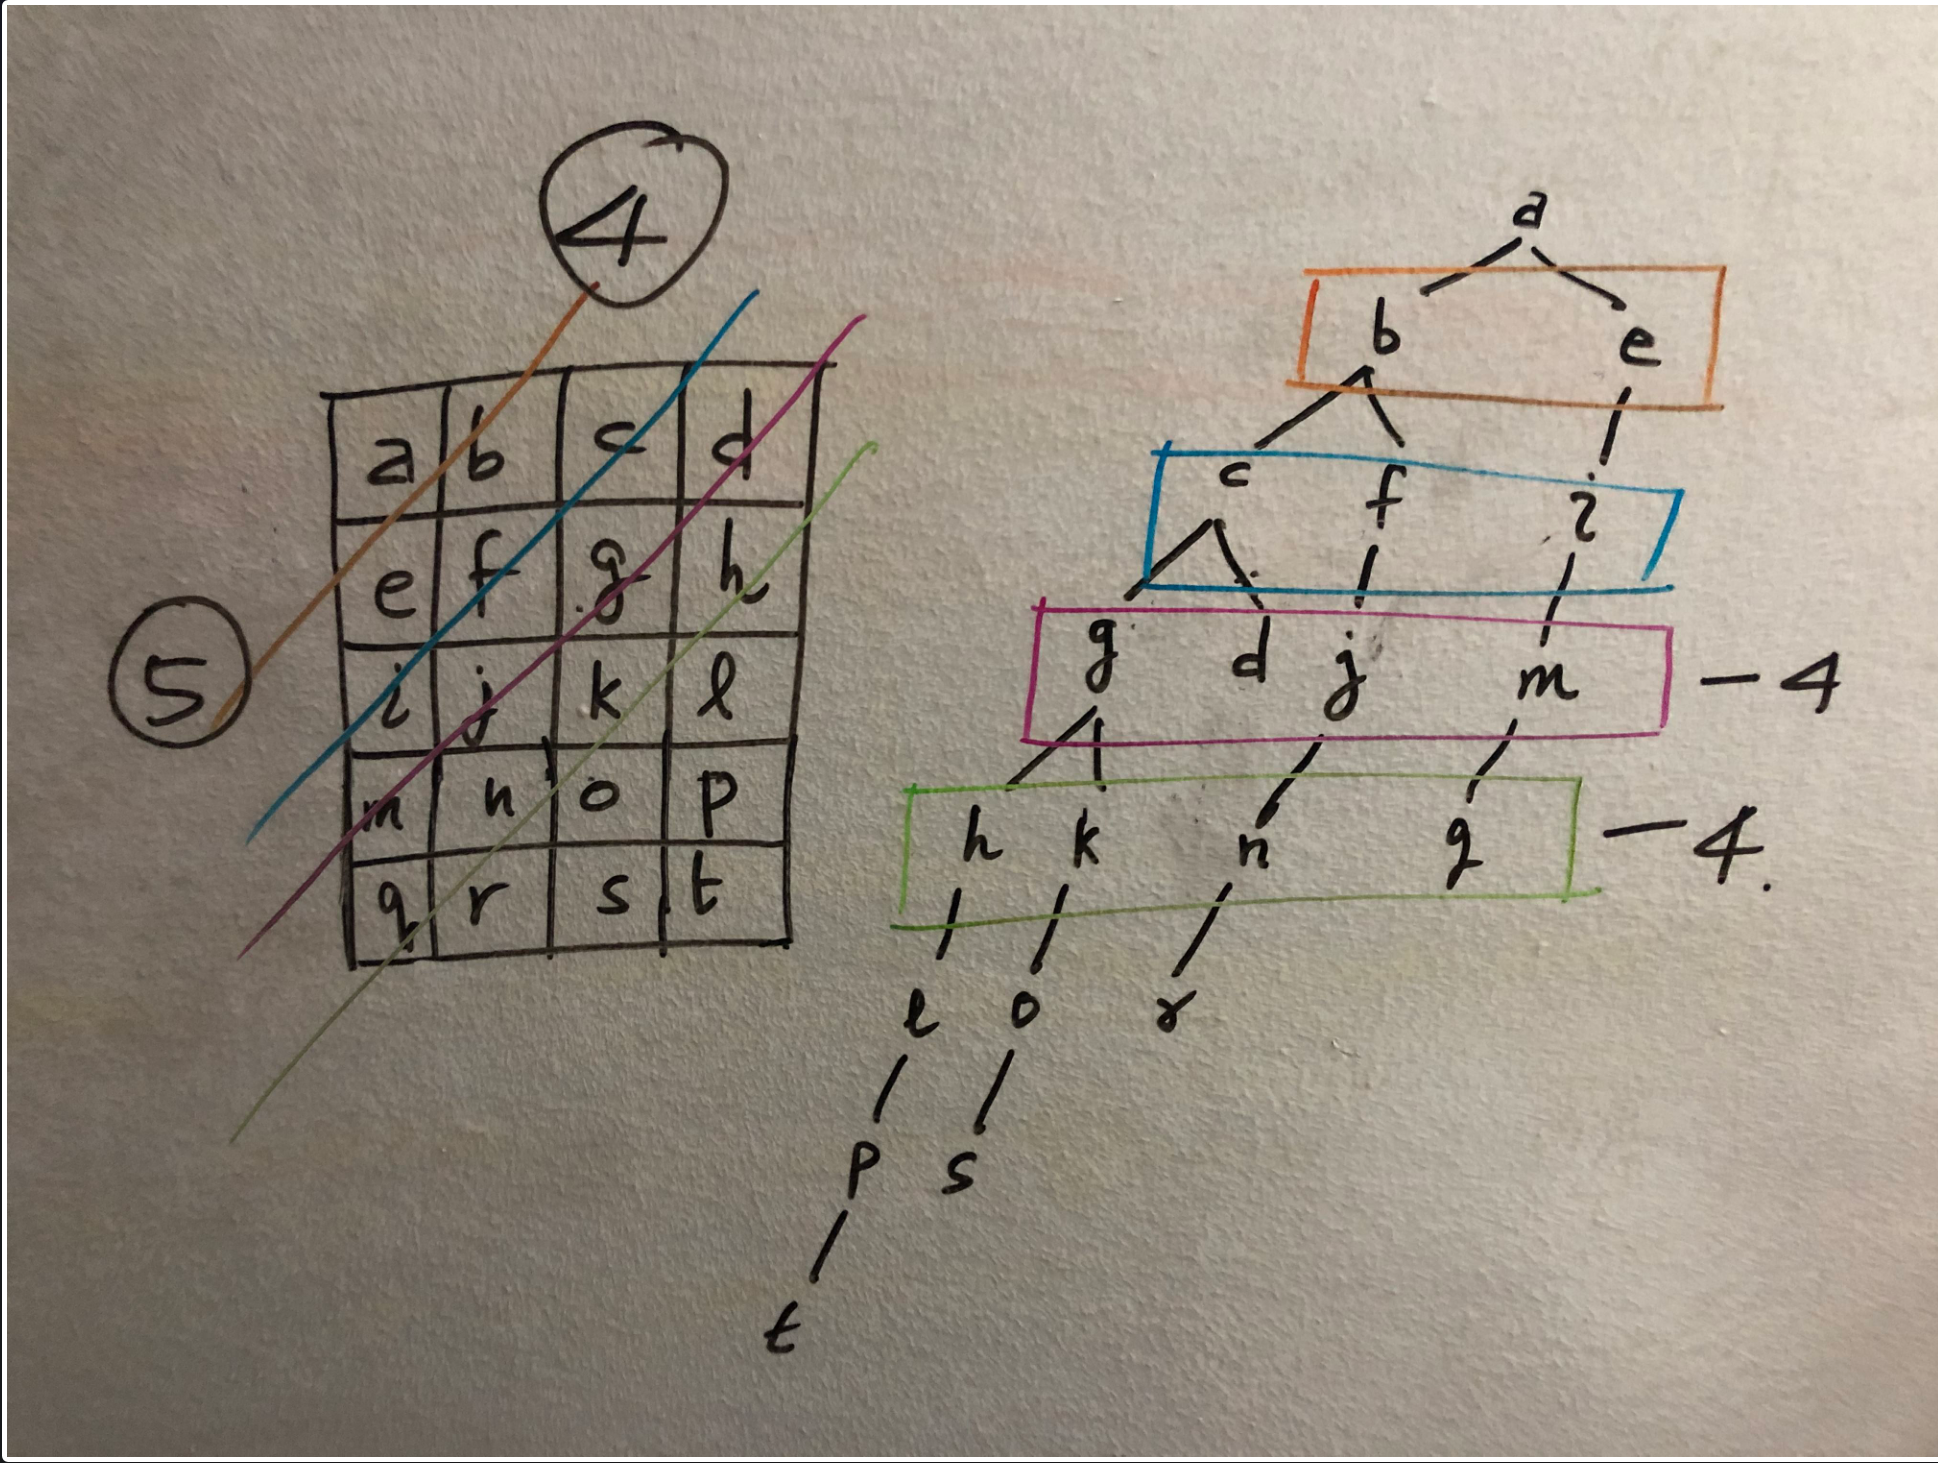 4
5
a b c d
e f g h
i j k l
m n o p
q r s t
a
b e
c f i
g d j m - 4
h k n q - 4.
l o r
p s
t